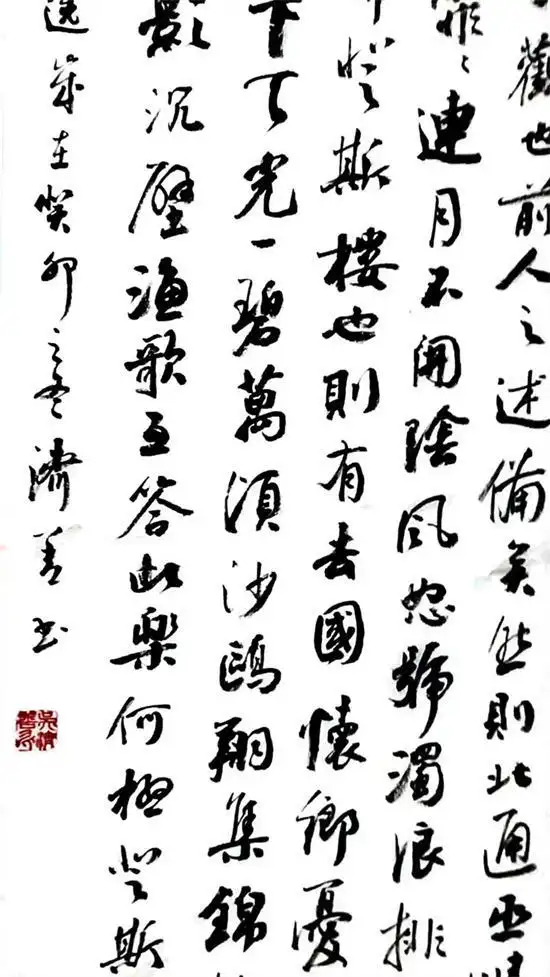 觀也前人之述備矣然則北通巫
霏〻連月不開陰風怒號濁浪排
登斯樓也則有去國懷鄉憂
下天光一碧萬頃沙鷗翔集錦
影沉璧漁歌互答此樂何極登斯
選歲在癸卯之冬濟善書